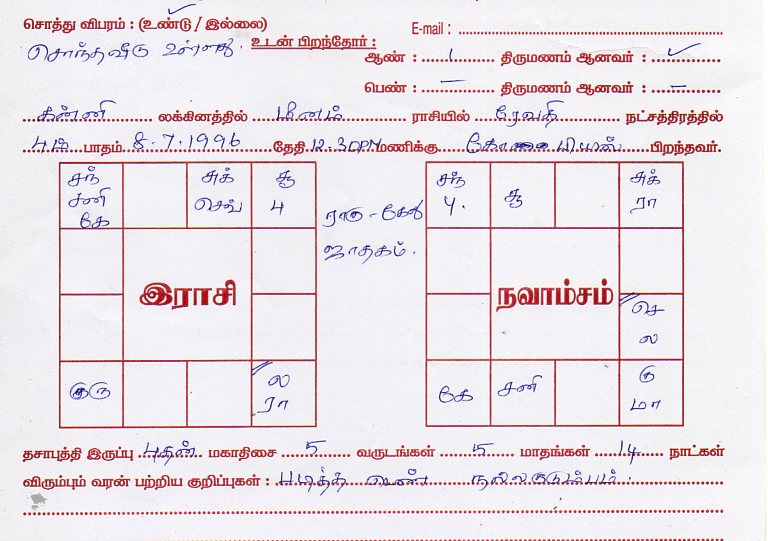 சொத்து விபரம் : (உண்டு / இல்லை) E-mail :
சொந்தவீடு உள்ளது. உடன் பிறந்தோர் :
ஆண் : 1 திருமணம் ஆனவர் :
பெண் : – திருமணம் ஆனவர் : –
கன்னி லக்கினத்தில் மீனம் ராசியில் ரேவதி நட்சத்திரத்தில்
4ம் பாதம் 8-7-1996 தேதி 12.30PM மணிக்கு பிறந்தவர்.
சந் சனி கே
சுக் செவ்
சூ 4
ராகு - கேது ஜாதகம்.
சந் 4.
சூ
சுக் ரா
இராசி
நவாம்சம்
செ ல
குரு
ல ரா
கே
சனி
கு மா
தசாபுத்தி இருப்பு புதன் மகாதிசை 5 வருடங்கள் 5 மாதங்கள் 14 நாட்கள்
விரும்பும் வரன் பற்றிய குறிப்புகள் : படித்த பெண் நல்லகுடும்பம்.